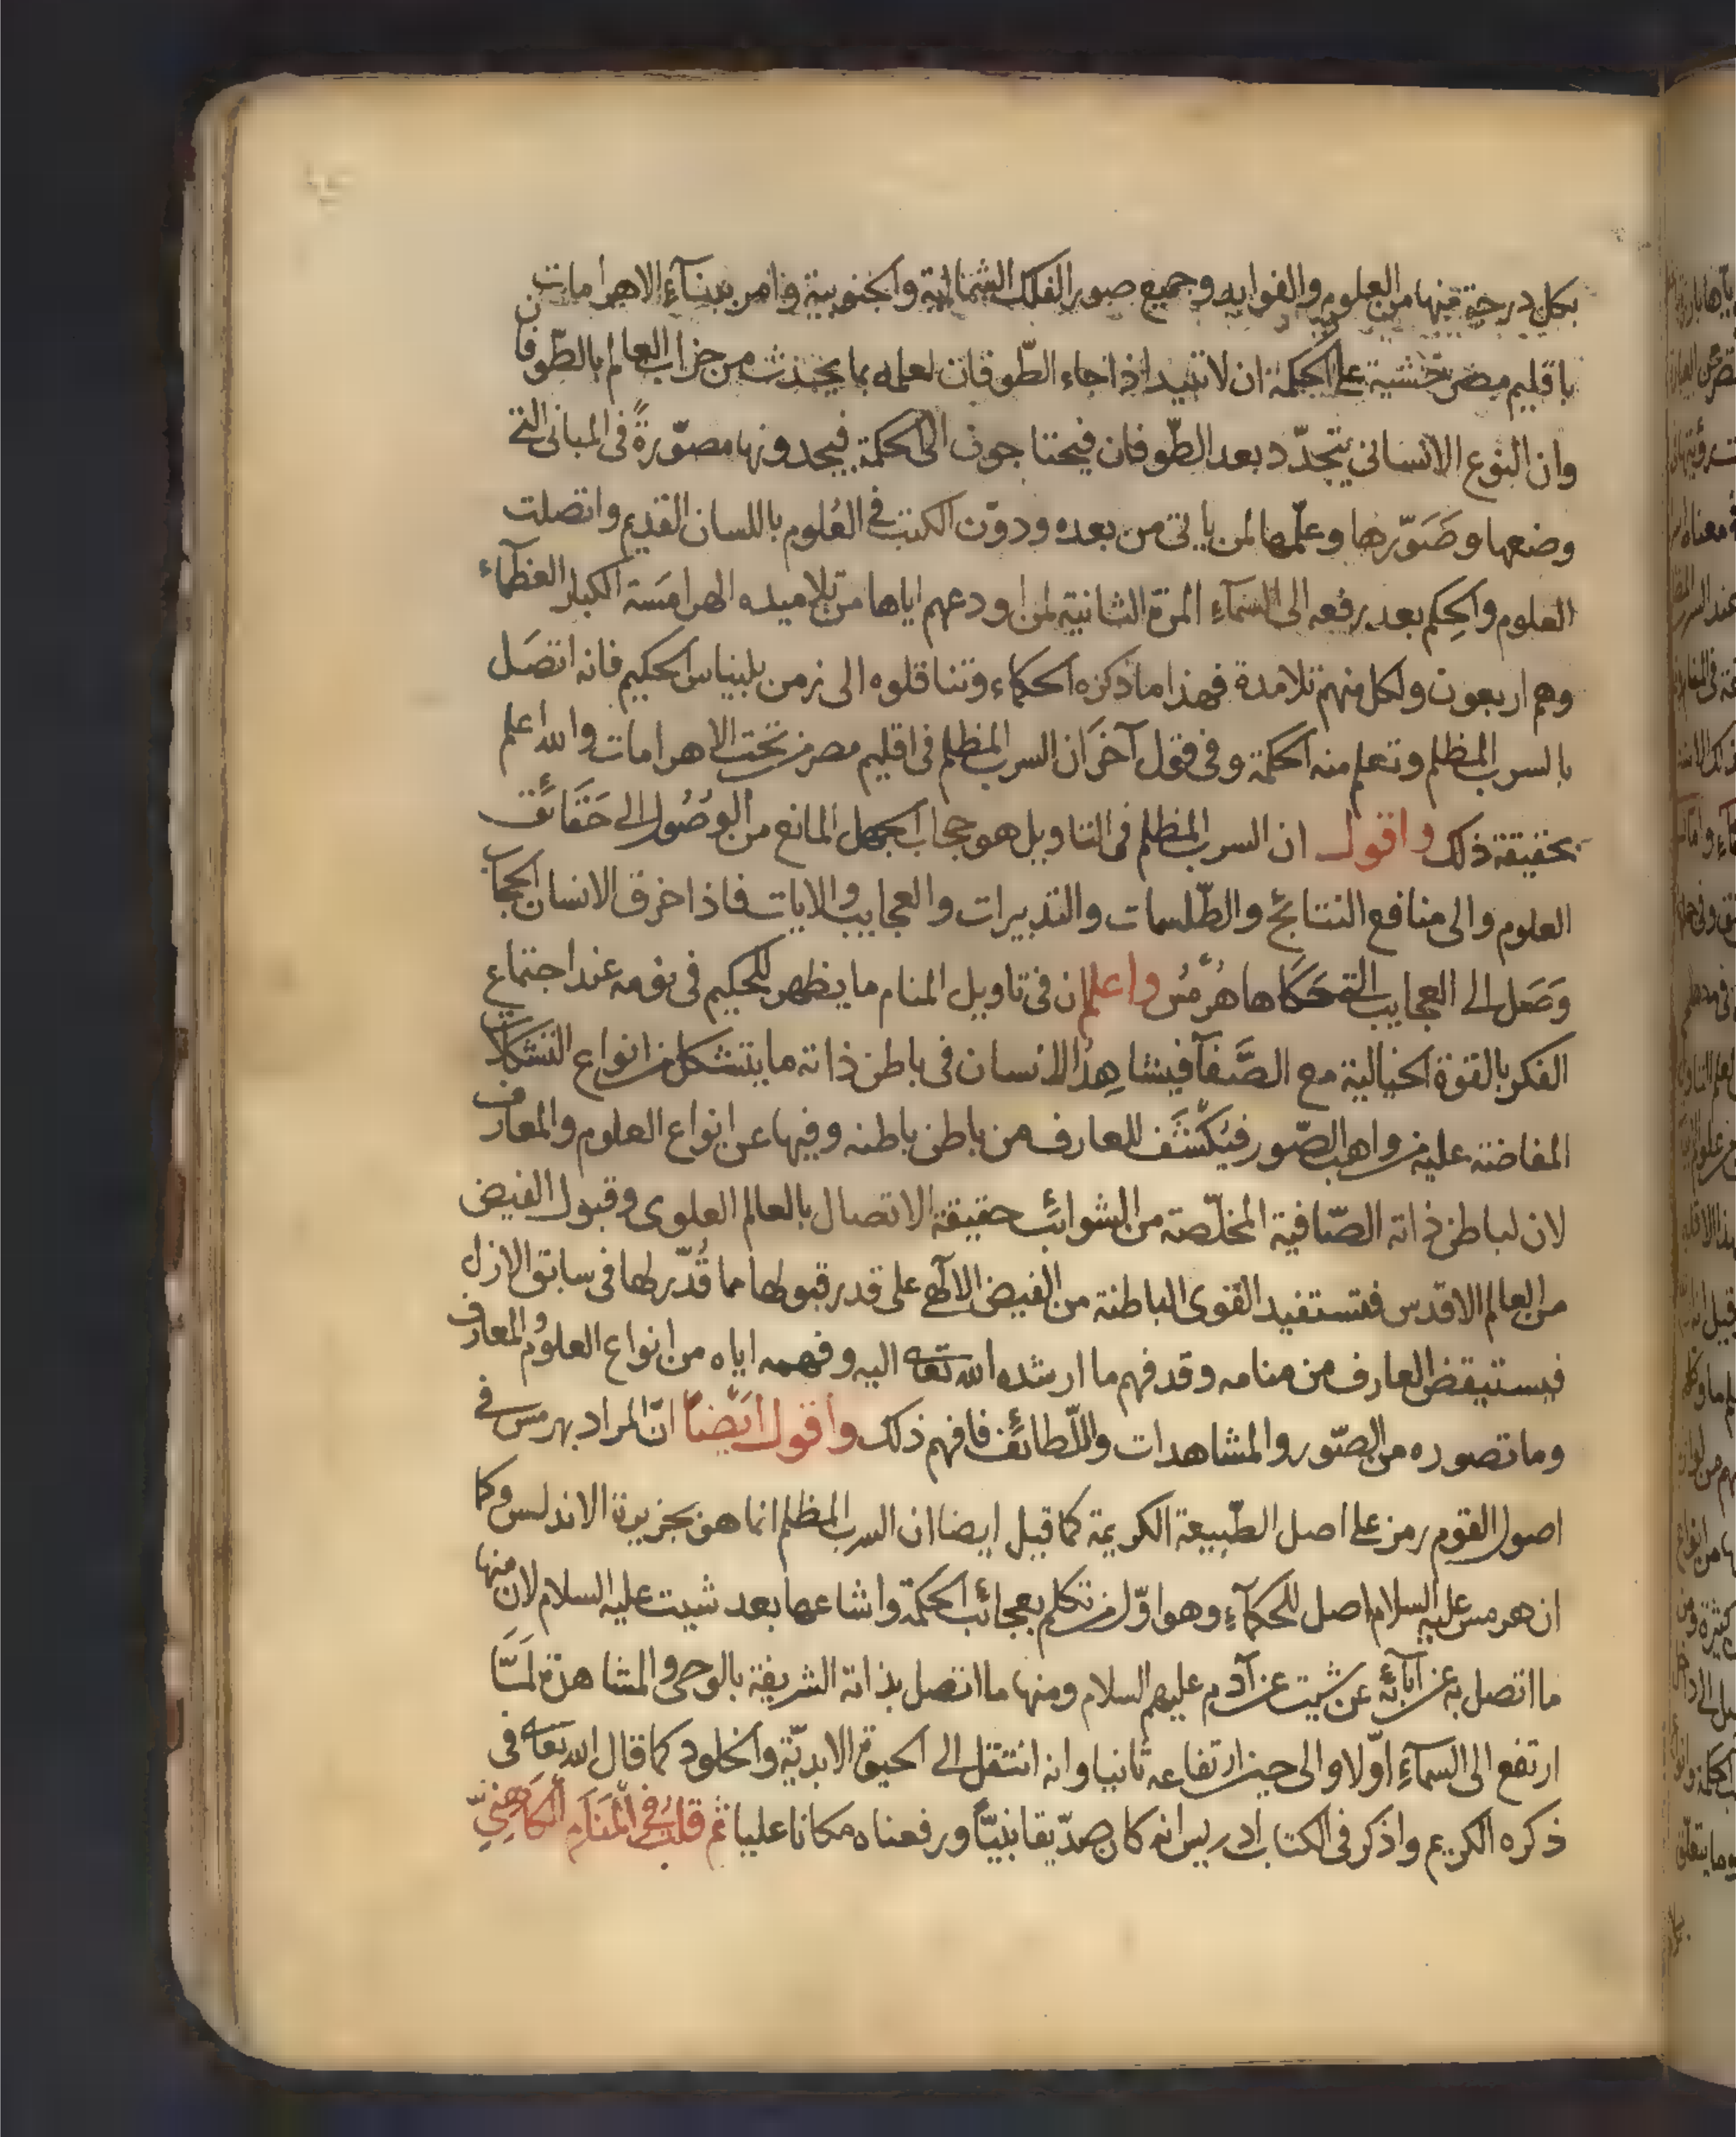 بكل درجة منها من العلوم والفوايد وجميع صور الفلك الشمالية والجنوبية وامر ببنآء الاهرامات
باقليم مصر خشية على الحكمة ان لا تبيد اذا جاء الطّوفان لعلمه بما يحدث من خراب العالم بالطّوفان
وان النوع الانساني يتجدّد بعد الطّوفان فيحتاجون الى الحكمة فيجدونها مصوّرةً في المباني التي
وضعها وصَوّرها وعلّمها لمن ياتي من بعده ودوّن الكتب في العُلوم باللسان القديم واتصلت
العلوم والحِكم بعد رفعه الى السّمآءِ المرّة الثانية لمن اودعهم اياها من تلاميده الهرامَسَة الكبار العظمآء
وهم اربعون ولكل منهم تلامدة فهذا ما ذكره الحكماء وتناقلوه الى زمن بلينياس الحكيم فانه اتصَل
بالسرب المظلم وتعلم منه الحكمة وفي قول آخَر ان السرب المظلم في اقليم مصر من تحت الاهرامات والله اعلم
بحقيقة ذلك واقول ان السرب المظلم في التاويل هو حجاب الجهل المانع من الوصُول الى حَقَائق
العلوم والى منافع النتائج والطّلسمات والتدبيرات والعجايب والايات فاذا خرق الانسان الحجاب
وَصَل الى العجايب التي حَكَاها هُرْمُس واعلم ان في تاويل المنام ما يظهر للحكيم في نومه عند اجتماع
الفكر بالقوة الخيالية مع الصَّفآ فيشاهِدُ الانسان في باطن ذاته ما يتشكل من انواع التشكلات
المفاضة عليه من واهب الصّور فيُكْشَف للعارف من باطن باطنه وفيها عن انواع العلوم والمعارف
لان لباطن ذاته الصّافية المخلّصة من الشوائب حقيقة الاتصال بالعالم العلوى وقبول الفيض
من العالم الاقدس فتستفيد القوى الباطنة من الفيض الالآهي على قدر قبولها مما قُدّر لها في سابق الازل
فيستيقض العارف من منامه وقد فهم ما ارشده الله تعه اليه وفهمه اياه من انواع العلوُم والمعارف
وما تصوره من الصّور والمشاهدات واللّطائف فافهم ذلك واقول اَيْضاً انّ المراد بهرمس في
اصول القوم رمز على اصل الطّبيعة الكريمة كما قيل ايضا ان السرب المظلم انما هو بجزيرة الاندلس وكما
ان هرمس عليه السلام اصل للحكمآء وهو اوّل من تكلم بعجائب الحكمة واشاعها بعد شيت عليه السلام لان منها
ما اتصل به عن آبائه عن شيت عن آدم عليهم السلام ومنها ما اتصل بذاته الشريفة بالوحى والمشاهدة لَمّا
ارتفع الى السمآءِ اوّلا والى حين ارتفاعه ثانيا وانه انتقل الى الحيوة الابديّة والخلود كما قال الله تعه في
ذكره الكريم واذكر في الكتاب ادريس انه كان صدّيقا نبيّاً ورفعناه مكانا عليا ثم قلتُ في الْمَنَامِ الْكَاهِنِيّ